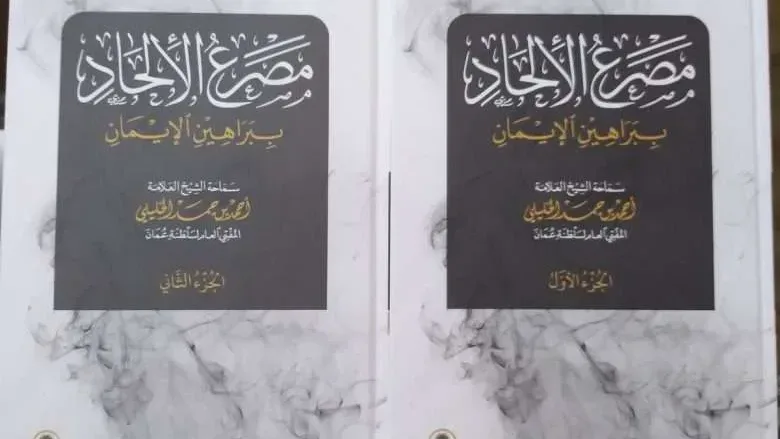 مَصْرَعُ الإِلْحَادِ
بِبَرَاهِينِ الإِيمَانِ
سماحة الشيخ العلامة
أحمد بن حمد الخليلي
المفتي العام لسلطنة عُمان
الجُزْءُ الأوَّلُ
مَصْرَعُ الإِلْحَادِ
بِبَرَاهِينِ الإِيمَانِ
سماحة الشيخ العلامة
أحمد بن حمد الخليلي
المفتي العام لسلطنة عُمان
الجُزْءُ الثَّانِي